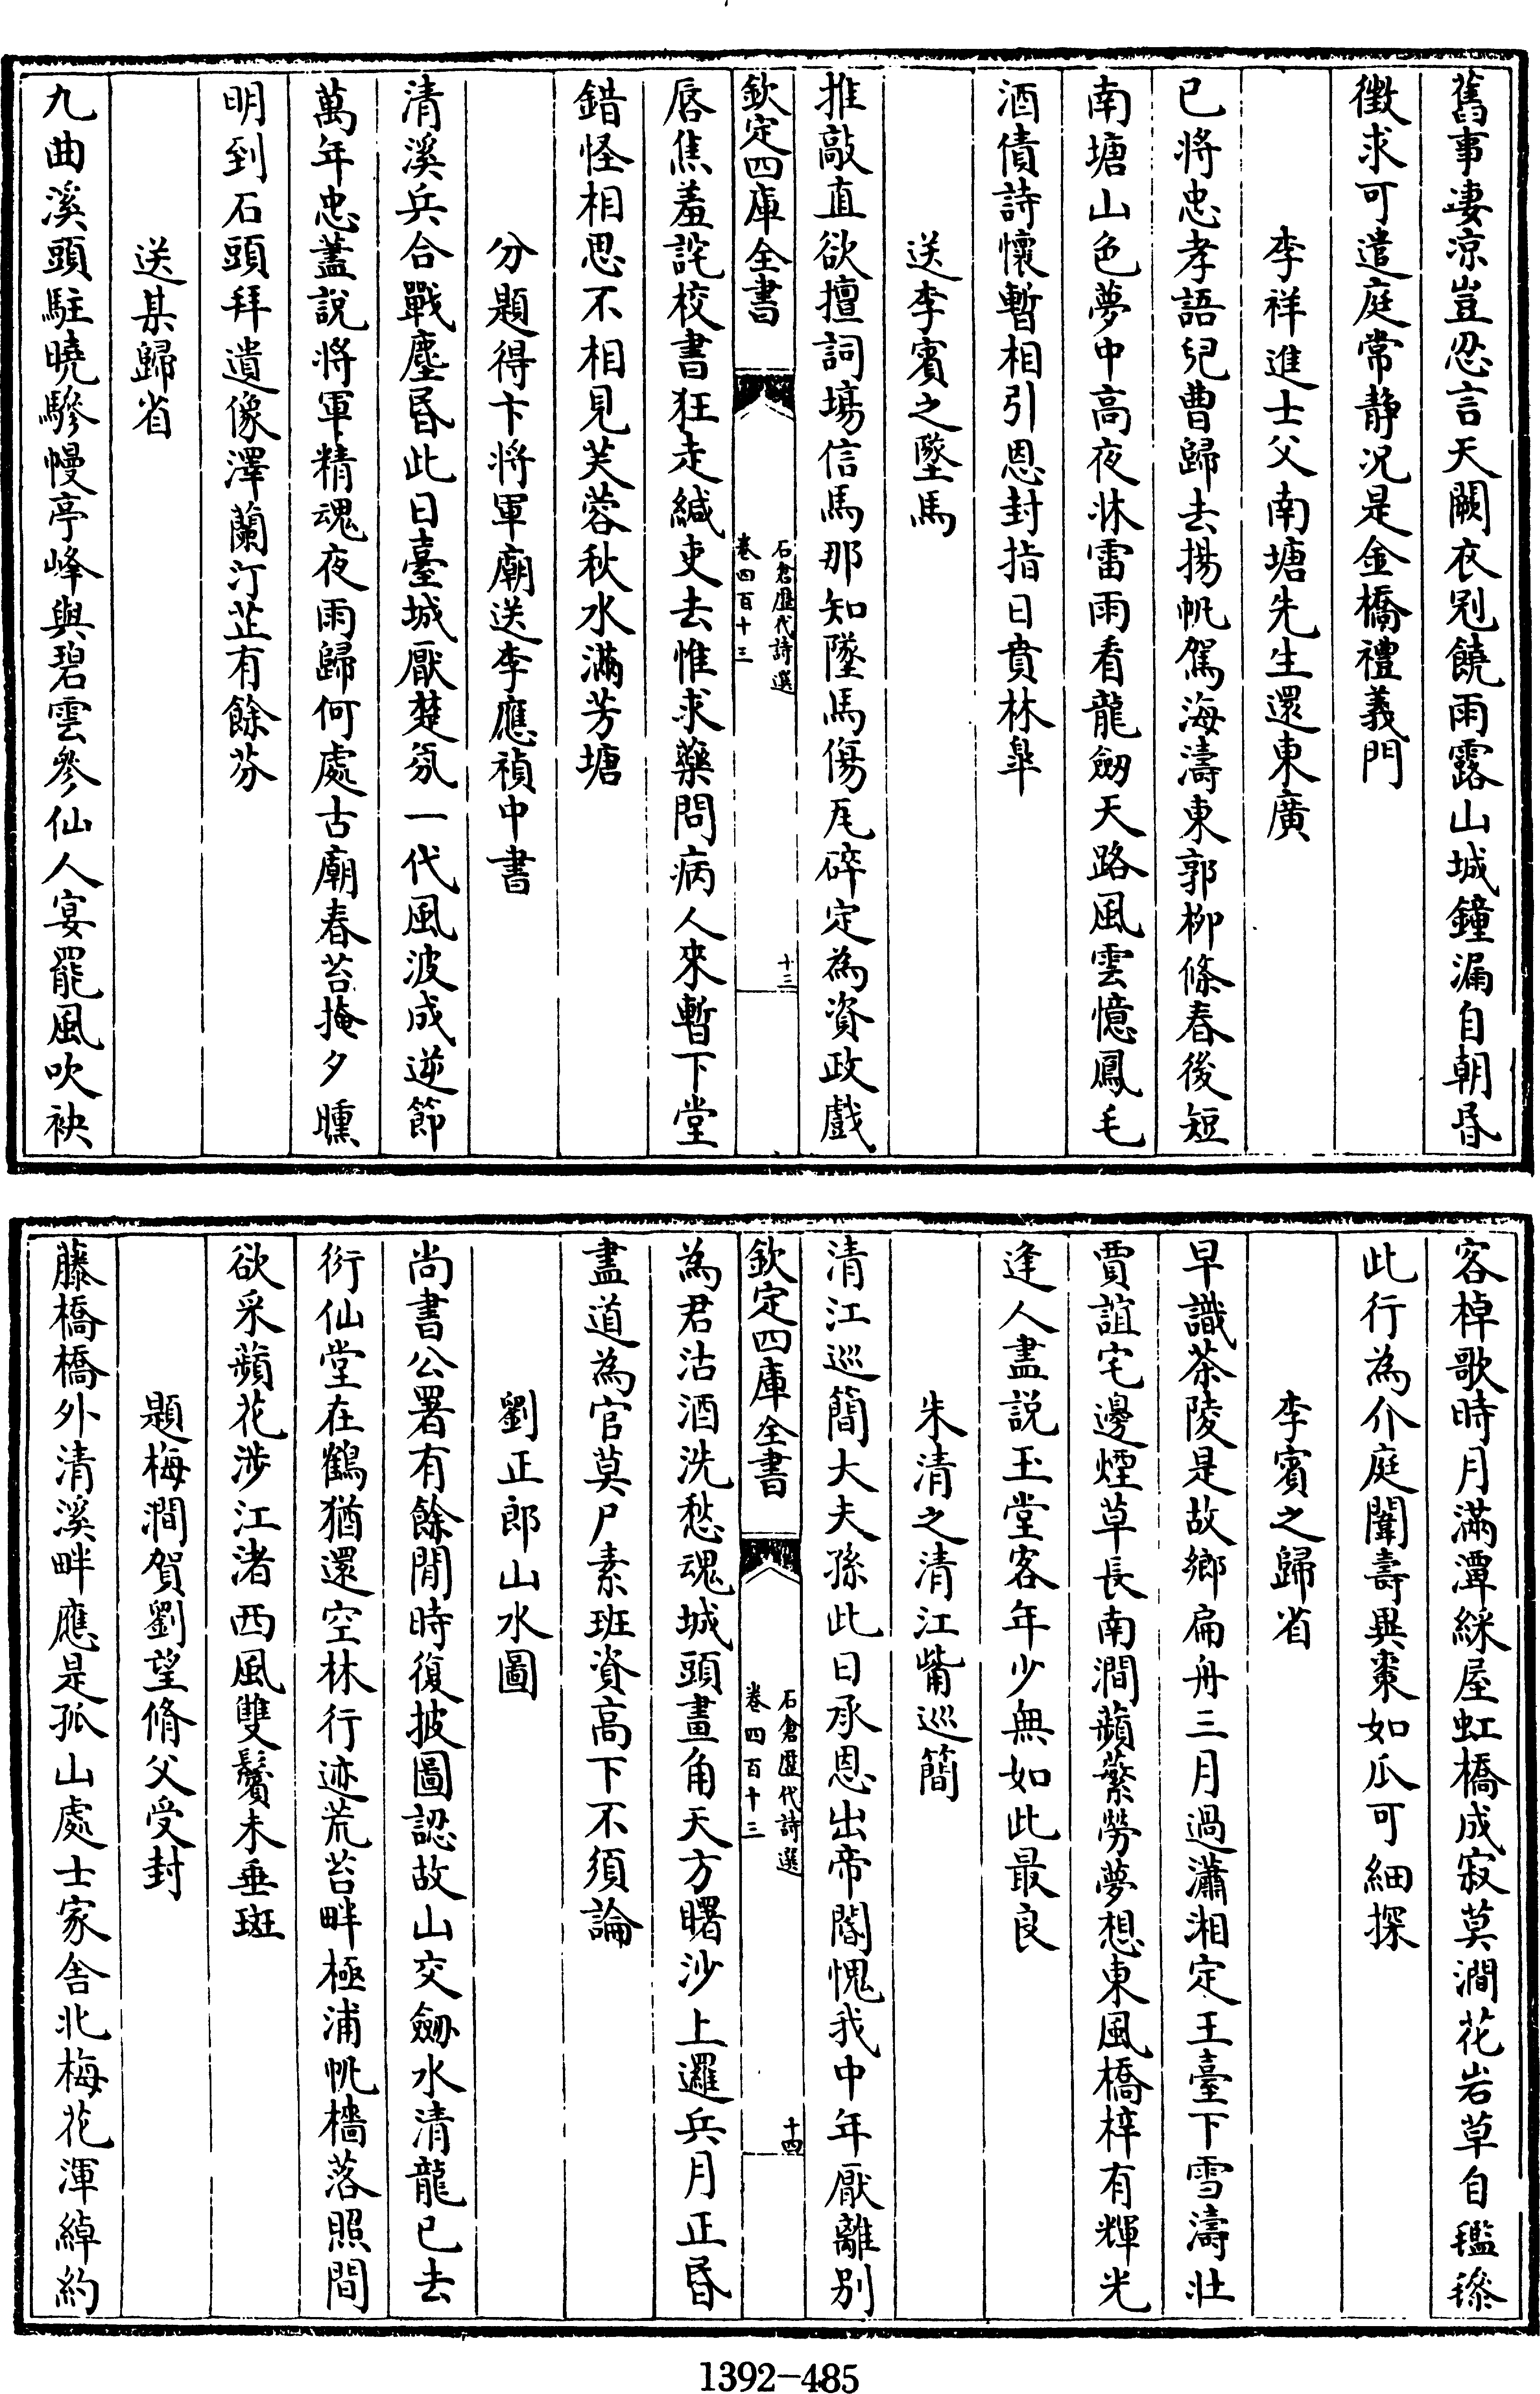 舊事凄凉豈忍言天闕衣冠饒雨露山城鐘漏自朝昏
徴求可遣庭常静况是金橋禮義門
李祥進士父南塘先生還東廣
已將忠孝語兒曹歸去揚帆駕海濤東郭柳條春後短
南塘山色夢中高夜牀雷雨看龍劒天路風雲憶鳳毛
酒債詩懷暫相引恩封指日賁林臯
送李賓之墜馬
推敲直欲擅詞塲信馬那知墜馬傷瓦碎定為資政戲
欽定四庫全書
石倉歴代詩選
卷四百十三
十三
唇焦羞詫校書狂走緘吏去惟求藥問病人來暫下堂
錯怪相思不相見芙蓉秋水滿芳塘
分題得卞將軍廟送李應禎中書
清溪兵合戰塵昏此日臺城厭楚氛一代風波成逆節
萬年忠藎說將軍精魂夜雨歸何處古廟春苔掩夕曛
明到石頭拜遺像澤蘭汀芷有餘芬
送某歸省
九曲溪頭駐曉驂幔亭峰與碧雲參仙人宴罷風吹袂
客棹歌時月滿潭綵屋虹橋成寂莫澗花岩草自㲯毿
此行為介庭闈壽興棗如瓜可細探
李賓之歸省
早識茶陵是故鄉扁舟三月過瀟湘定王臺下雪濤壯
賈誼宅邊煙草長南澗蘋蘩勞夢想東風橋梓有輝光
逢人盡説玉堂客年少無如此最良
朱清之清江觜巡簡
清江巡簡大夫孫此日承恩出帝閽愧我中年厭離别
欽定四庫全書
石倉歴代詩選
卷四百十三
十四
為君沽酒洗愁魂城頭畫角天方曙沙上邏兵月正昏
盡道為官莫尸素班資高下不須論
劉正郎山水圖
尚書公署有餘閒時復披圖認故山交劒水清龍已去
衍仙堂在鶴猶還空林行迹荒苔畔極浦帆檣落照間
欲采蘋花涉江渚西風雙鬢未垂斑
題梅澗賀劉望脩父受封
藤橋橋外清溪畔應是孤山處士家舍北梅花渾綽約
1392-485